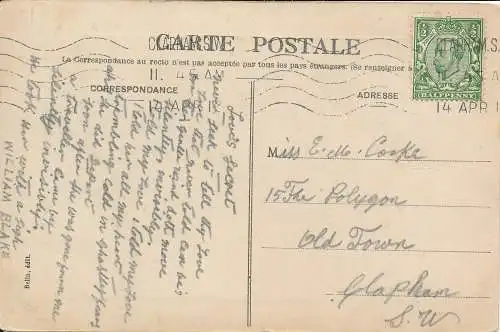 CARTE POSTALE
La Correspondance au recto n'est pas acceptée par tous les pays étrangers. (Se renseigner à
CORRESPONDANCE
ADRESSE
CLAPHAM.S.W
11.45 AM
14 APR
HALFPENNY
Love's Secret
Never seek to tell thy love
Love that never told can be;
For the gentle wind doth move
Silently, invisibly.
I told my love, I told my love
I told her all my heart
Trembling, cold in ghastly fears
Ah she did depart
Soon after she was gone from me
a traveller came by
Silently invisibly
He took her with a sigh
WILLIAM BLAKE
Miss E. M. Cooke
15 The Polygon
Old Town
Clapham
S.W